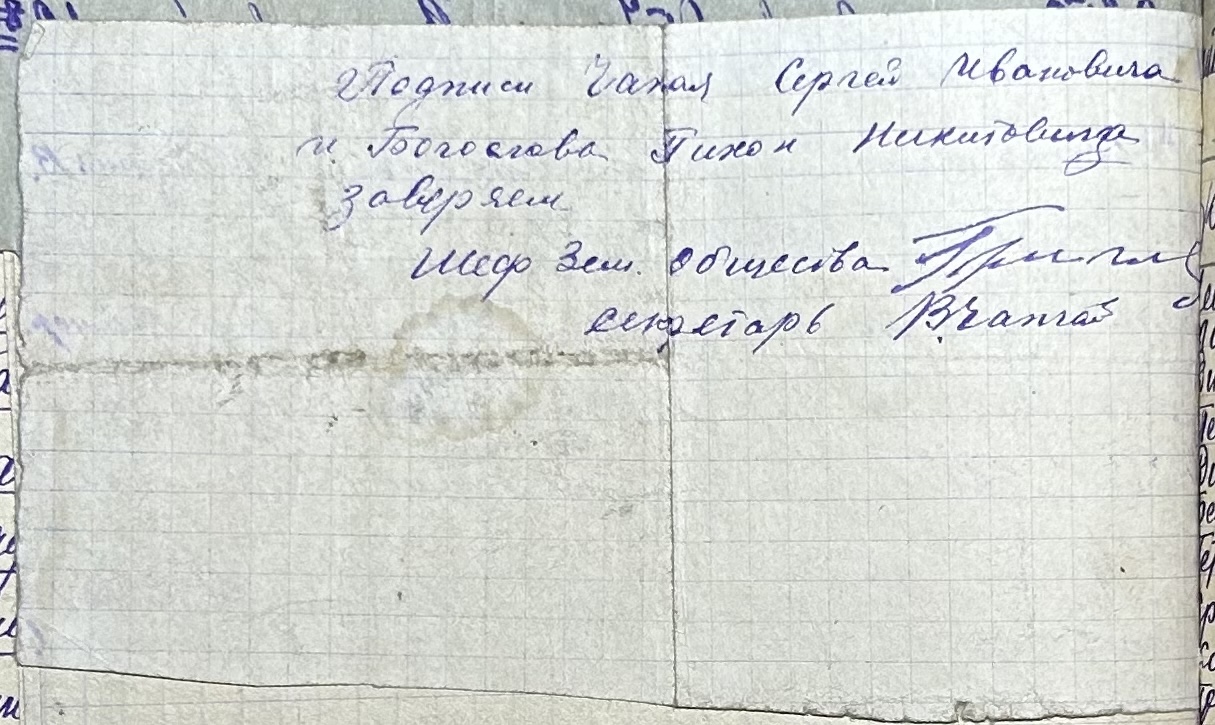 Подписи Чахая Сергей Ивановича
и Богослова Тихон Никитовича
заверяем
Шеф Зем. общества
секретарь